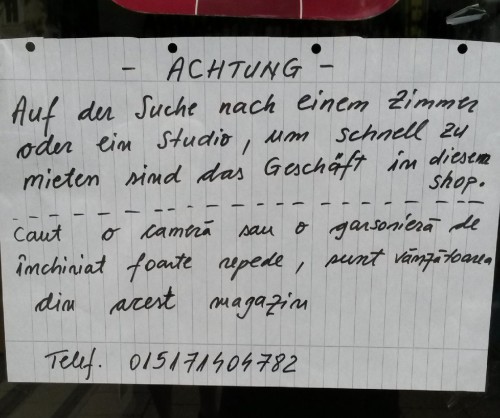 - ACHTUNG -
Auf der Suche nach einem Zimmer
oder ein Studio, um schnell zu
mieten sind das Geschäft in diesem
shop.
Caut o cameră sau o garsonieră de
închiriat foarte repede, sunt vânzătoarea
din acest magazin
Telef. 015171404782